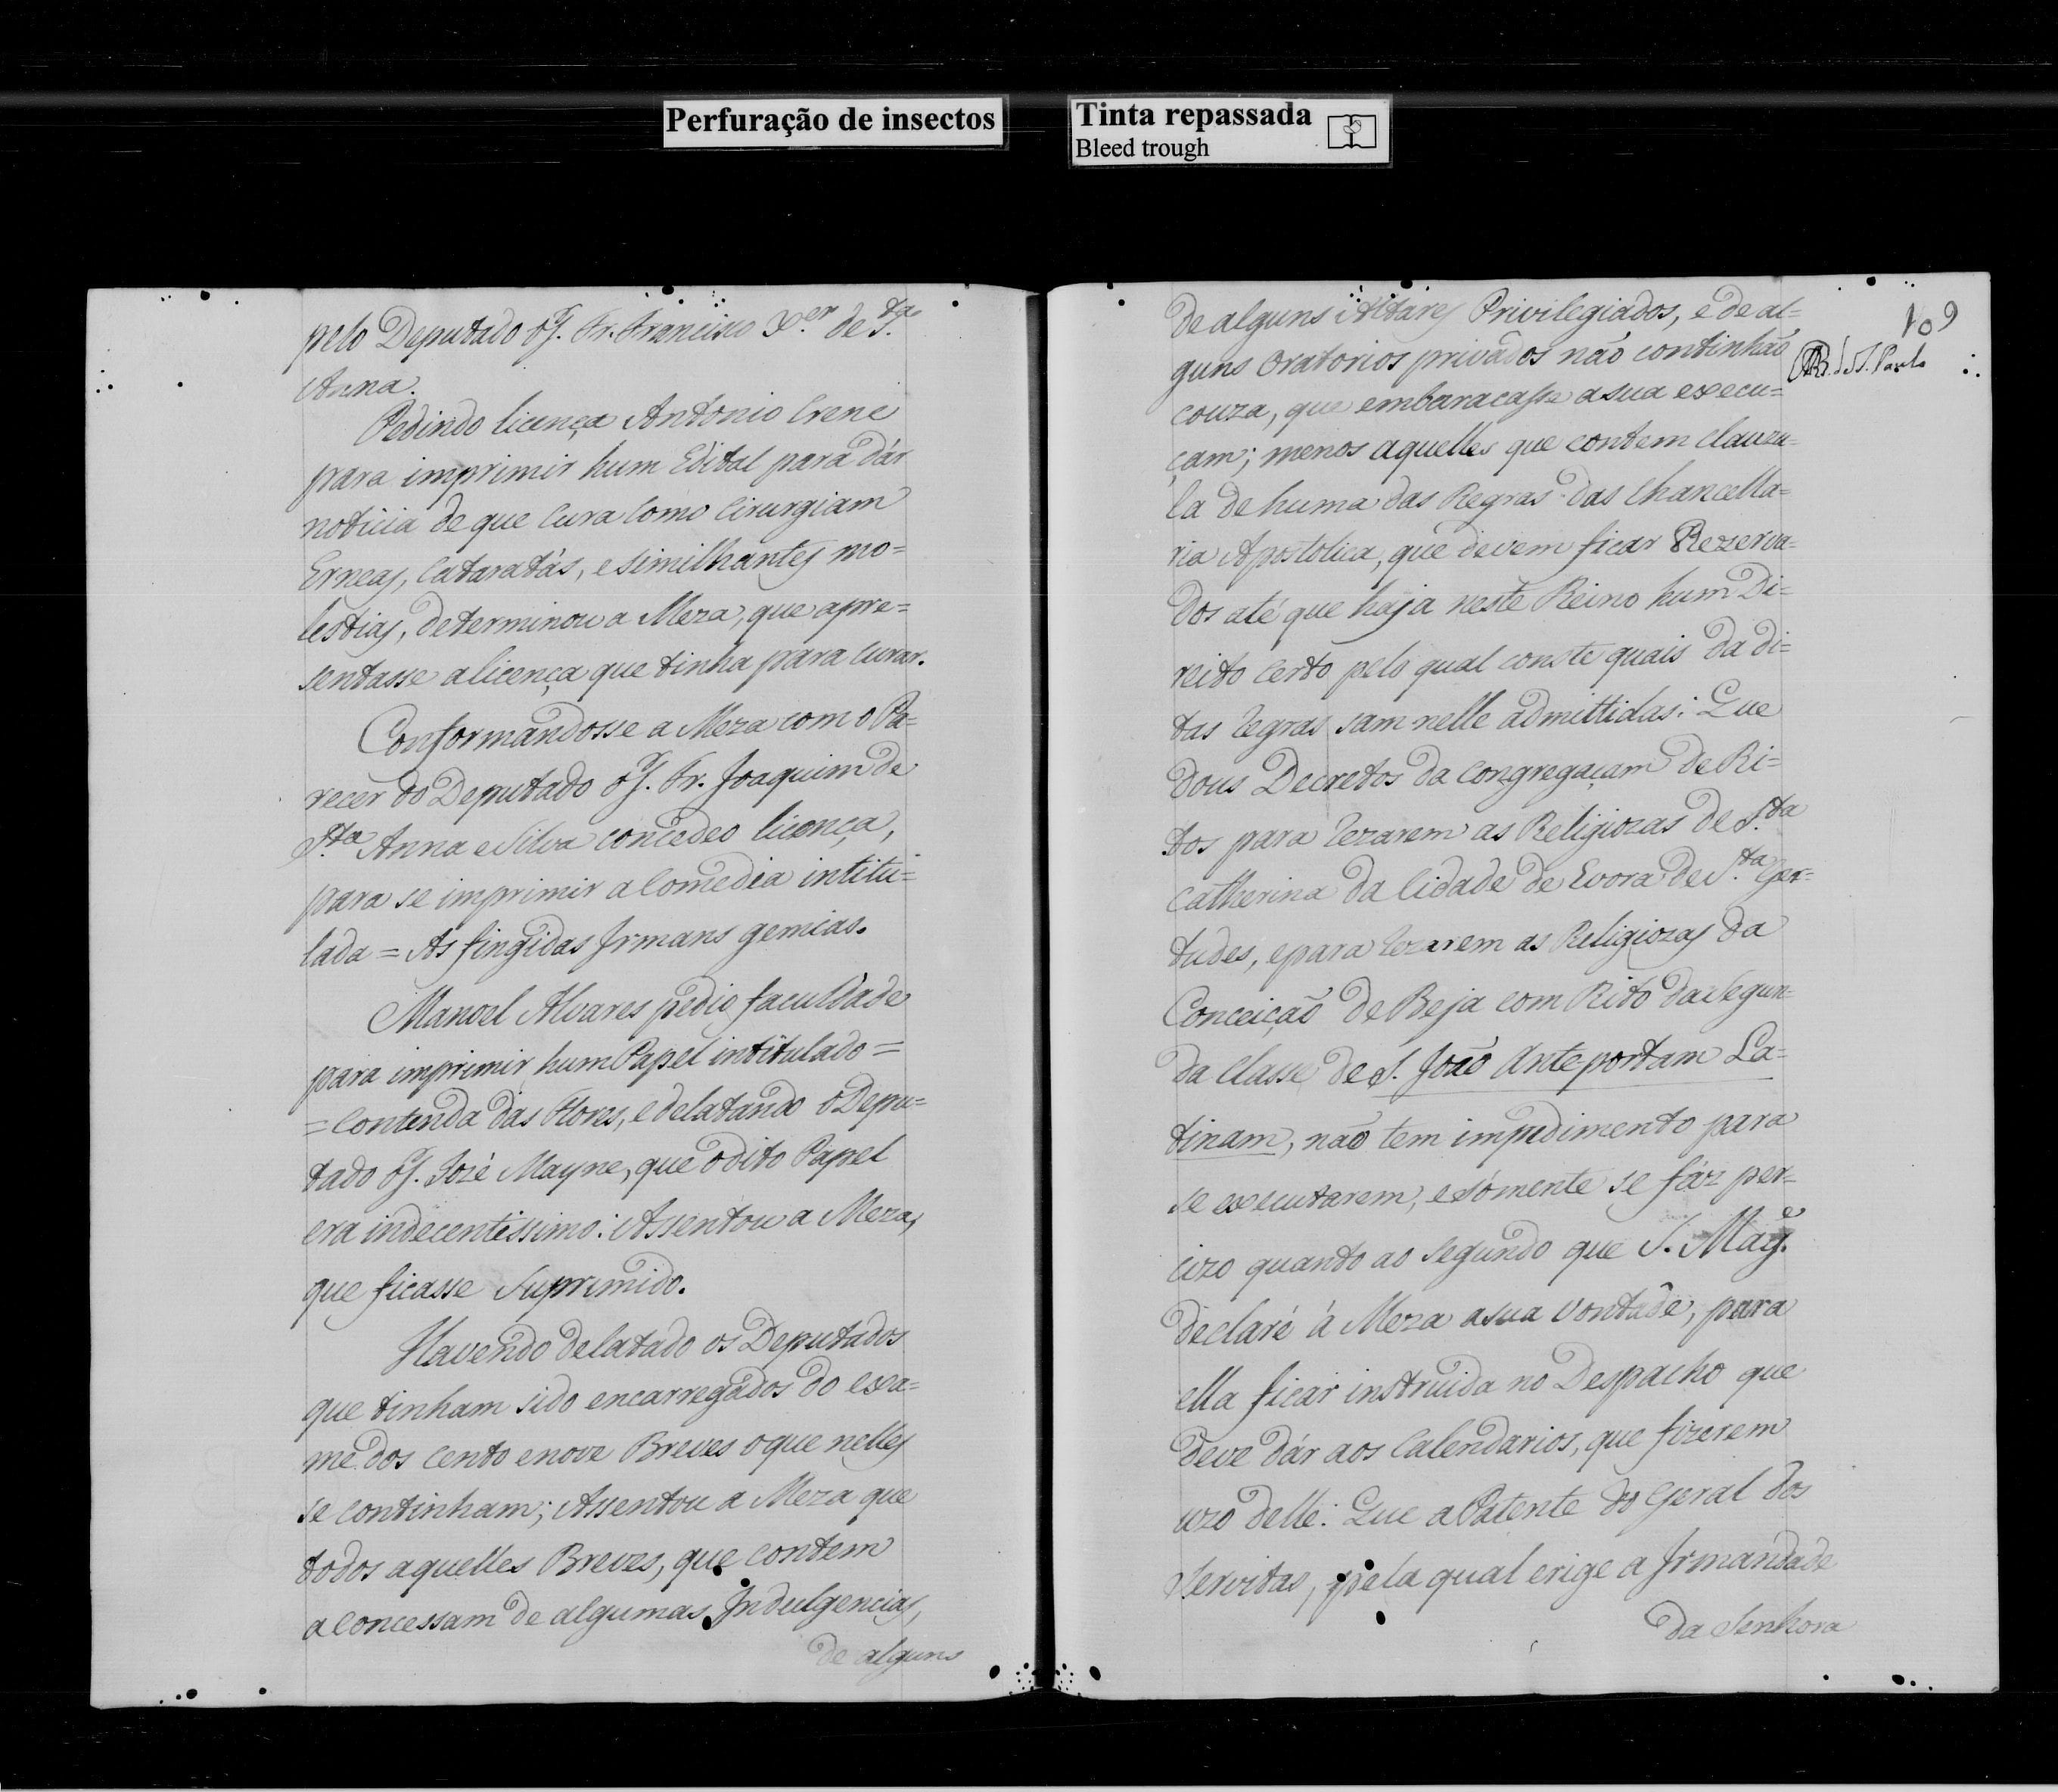 Perfuração de insectos
Tinta repassada
Bleed trough
pelo Deputado Fr. Francisco X.er de S.ta
Anna.
Pedindo licença Antonio Crene
para imprimir hum Edital para dár
noticia de que Cura como Cirurgiam
Erneas, Cataratás, e similhantes mo=
lestias, determinou a Meza, que apre=
sentasse a licença que tinha para curar.
Conformandosse a Meza com o Pa=
recer do Deputado Fr. Joaquim de
S.ta Anna e Silva concedeo licença,
para se imprimir a Comedia intitu=
lada = As fingidas Irmans gemias.
Manoel Alvares pedio faculdade
para imprimir hum Papel intitulado =
= Contenda das Flores, e delatando o Depu=
tado Fr. Jozé Mayne, que o dito Papel
era indecentissimo: Assentou a Meza,
que ficasse Suprimido.
Havendo delatado os Deputados
que tinham sido encarregados do exa=
me dos cento e nove Breves o que nelles
se continham; Assentou a Meza que
todos aquelles Breves, que contem
a Concessam de algumas Indulgencias,
de alguns
109
de alguns Altares Privilegiados, e de al=
guns Oratorios privados não continhão
R. de S. Paulo
couza, que embaracasse a sua execu=
çam; menos aquelles que contem clauzu=
la de huma das Regras das Chancella=
ria Apostolica, que devem ficar Rezerva=
dos até que haja neste Reino hum Di=
reito certo pelo qual conste quais da di=
tas regras sam nelle admittidas: Que
dous Decretos da Congregaçam de Ri=
tos para rezarem as Religiozas de S.ta
Catherina da Cidade de Evora de S.ta Ger=
tudes, e para rezarem as Religiozas da
Conceição de Beja com Rito da Segun=
da Classe de S. João Ante portam La=
tinam, não tem impedimento para
se executarem, e sómente se fáz per=
cizo quanto ao Segundo que S. Mag.e
declaré á Meza a sua vontade, para
ella ficar instruida no Despacho que
deve dár aos Calendarios, que fizerem
uzo delle: Que a Patente do Geral dos
Servitas, pela qual erige a Irmandade
da Senhora